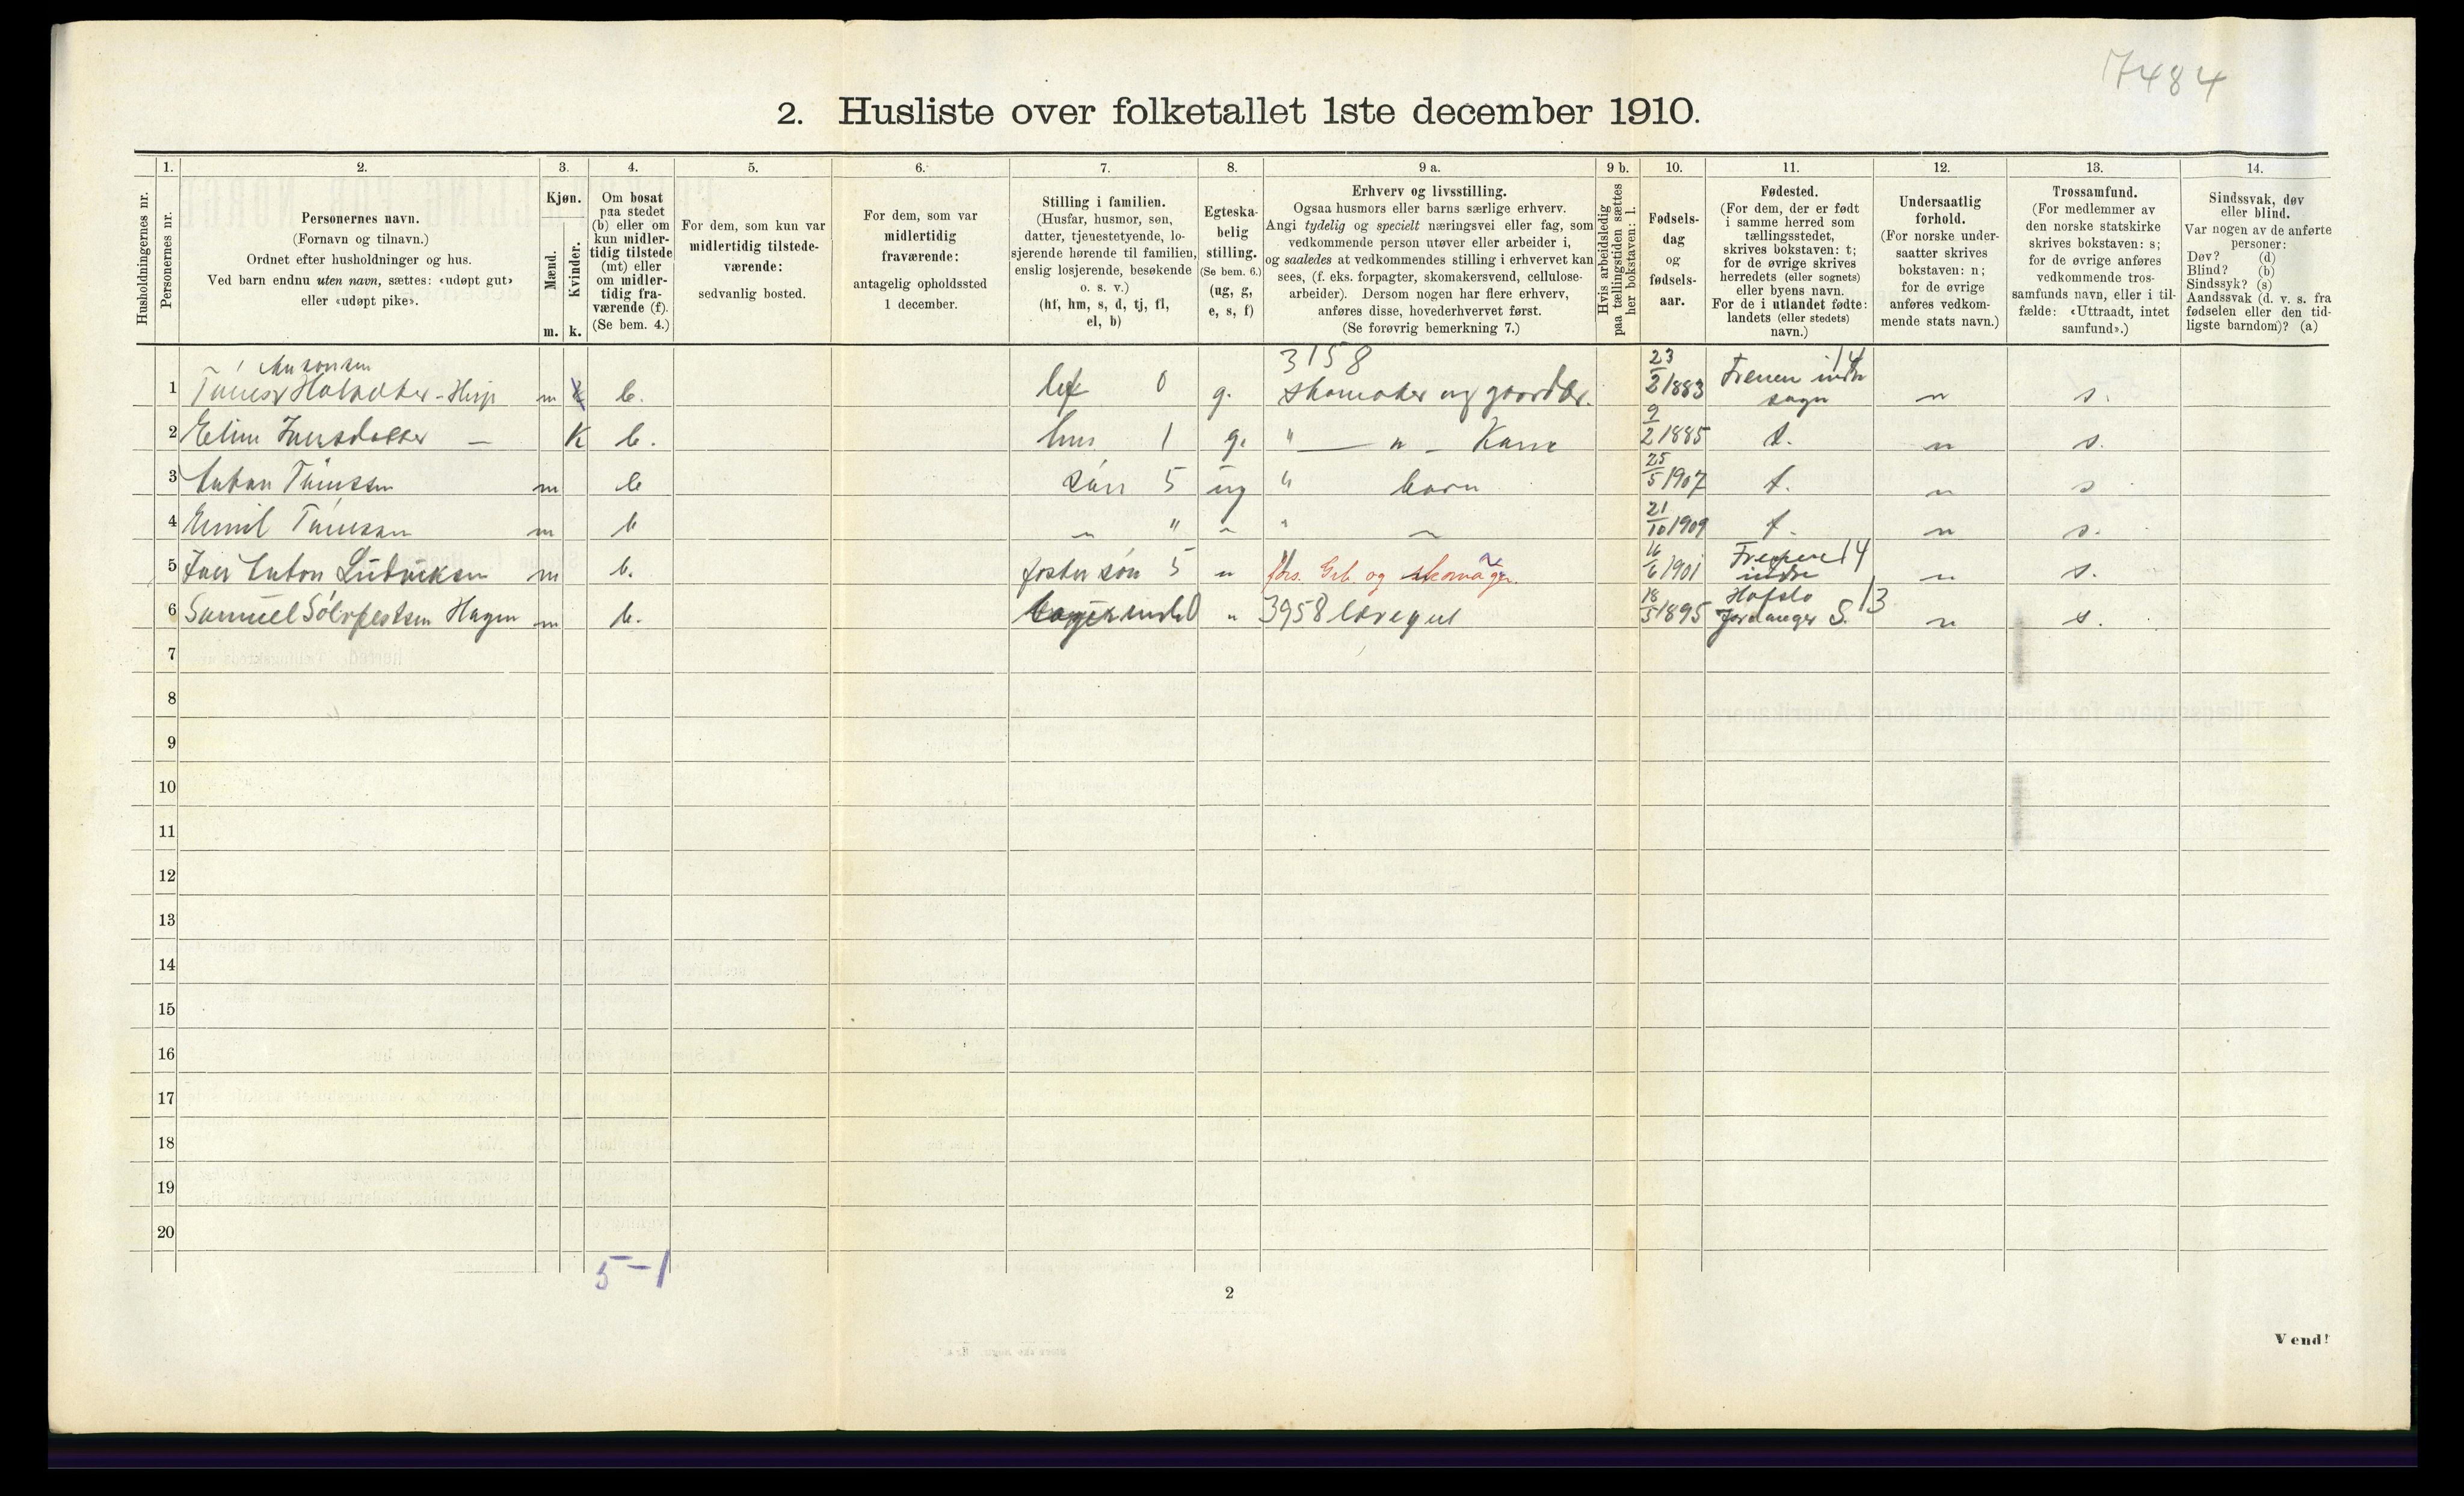 7484
2. Husliste over folketallet 1ste december 1910.
Husholdningernes nr.
1.
Personernes nr.
2.
Personernes navn.
(Fornavn og tilnavn.)
Ordnet efter husholdninger og hus.
Ved barn endnu uten navn, sættes: «udøpt gut»
eller «udøpt pike».
3.
Kjøn.
Mænd.
Kvinder.
m. k.
4.
Om bosat
paa stedet
(b) eller om
kun midler-
tidig tilstede
(mt) eller
om midler-
tidig fra-
værende (f).
(Se bem. 4.)
5.
For dem, som kun var
midlertidig tilstede-
værende:
sedvanlig bosted.
6.
For dem, som var
midlertidig
fraværende:
antagelig opholdssted
1 december.
7.
Stilling i familien.
(Husfar, husmor, søn,
datter, tjenestetyende, lo-
sjerende hørende til familien,
enslig losjerende, besøkende
o. s. v.)
(hf, hm, s, d, tj, fl,
el, b)
8.
Egteska-
belig
stilling.
(Se bem. 6.)
(ug, g,
e, s, f)
9 a.
Erhverv og livsstilling.
Ogsaa husmors eller barns særlige erhverv.
Angi tydelig og specielt næringsvei eller fag, som
vedkommende person utøver eller arbeider i,
og saaledes at vedkommendes stilling i erhvervet kan
sees, (f. eks. forpagter, skomakersvend, cellulose-
arbeider). Dersom nogen har flere erhverv,
anføres disse, hovederhvervet først.
(Se forøvrig bemerkning 7.)
9 b.
Hvis arbeidsledig
paa tællingstiden sættes
her bokstaven: l.
10.
Fødsels-
dag
og
fødsels-
aar.
11.
Fødested.
(For dem, der er født
i samme herred som
tællingsstedet,
skrives bokstaven: t;
for de øvrige skrives
herredets (eller sognets)
eller byens navn.
For de i utlandet fødte:
landets (eller stedets)
navn.)
12.
Undersaatlig
forhold.
(For norske under-
saatter skrives
bokstaven: n;
for de øvrige
anføres vedkom-
mende stats navn.)
13.
Trossamfund.
(For medlemmer av
den norske statskirke
skrives bokstaven: s;
for de øvrige anføres
vedkommende tros-
samfunds navn, eller i til-
fælde: «Uttraadt, intet
samfund».)
14.
Sindssvak, døv
eller blind.
Var nogen av de anførte
personer:
Døv? (d)
Blind? (b)
Sindssyk? (s)
Aandssvak (d. v. s. fra
fødselen eller den tid-
ligste barndom)? (a)
3158
1 m b. 0 g. skomaker og 23/2 1883 indre sogn 14 n s.
2 K b. 1 g. " — " — Kone 9/2 1885 t. n s.
3 m b søn 5 ug " barn 25/5 1907 t. n s
4 Emil m b " " " 21/10 1909 t. n s.
5 Anton Ludviksen m b. foster søn 5 " og 16/6 1901 indre 14 n s.
6 Samuel Hagen m b. 0 " 3958 læregut 18/5 1895 Hafslo S. 13 n s.
7
8
9
10
11
12
13
14
15
16
17
18
19
20
5-1
2
Vend!